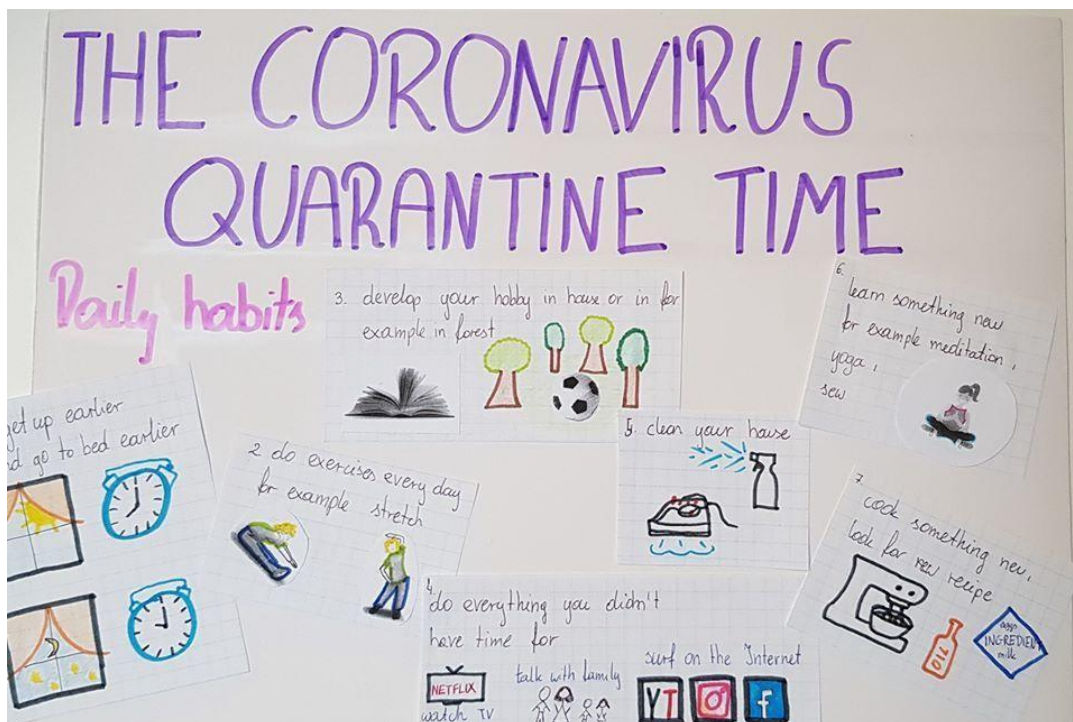 THE CORONAVIRUS
QUARANTINE TIME
Daily habits
get up earlier
go to bed earlier
2 do exercises every day
for example stretch
3. develop your hobby in house or in for
example in forest
4.
do everything you didn't
have time for
NETFLIX
watch TV
talk with family
surf on the Internet
YT
f
5. clean your house
6.
learn something new
for example meditation,
yoga,
sew
7.
cook something new,
look for new recipe
OIL
eggs
INGREDIENT
milk